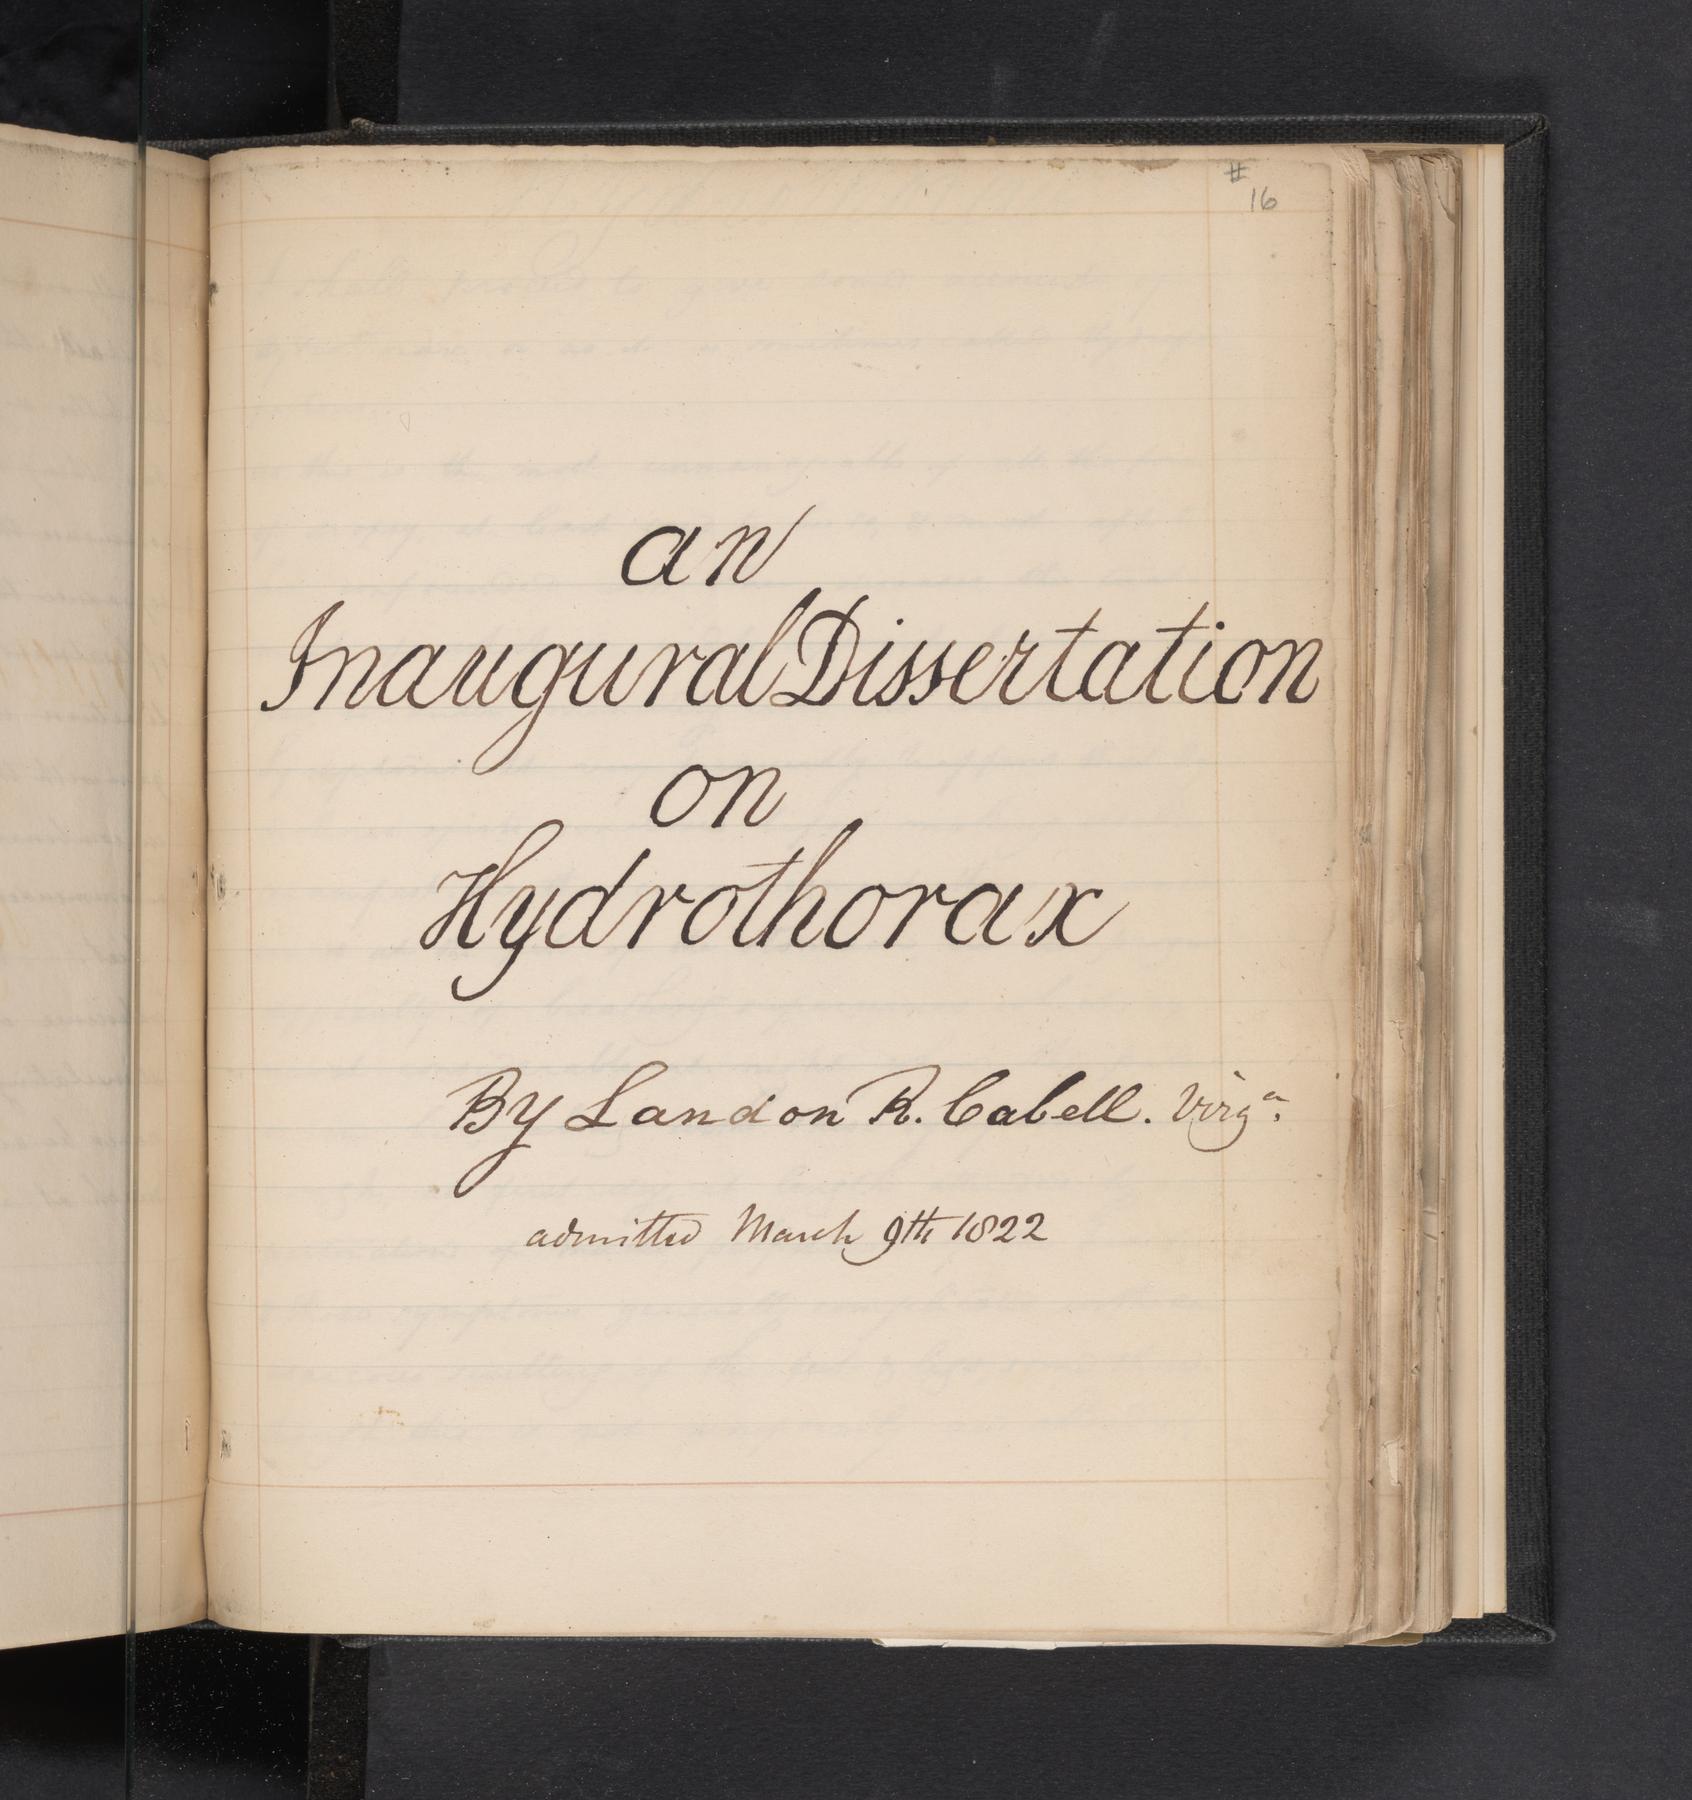 #
16
an
Inaugural Dissertation
on
Hydrothorax
By Landon R. Cabell. Virgᵃ.
admitted March 9th 1822